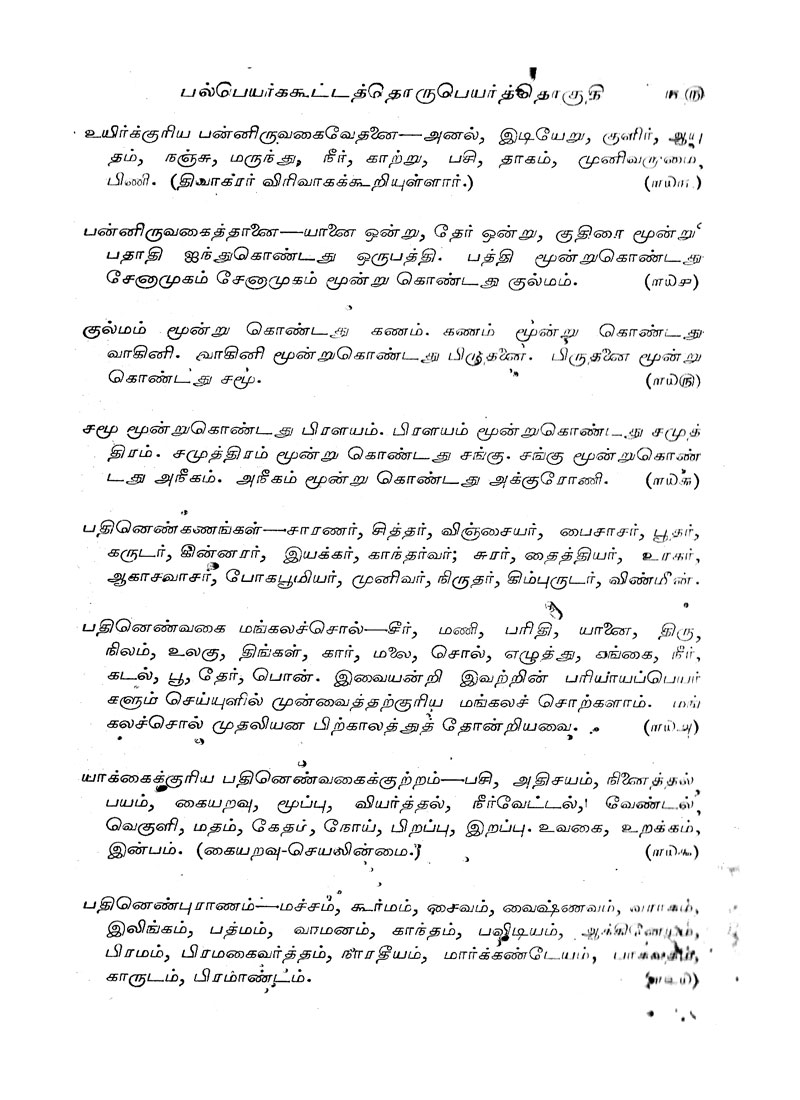 பல்பெயர்ககூட்டத்தொருபெயர்த்தொகுதி
உயிர்க்குரிய பன்னிருவகைவேதனை—அனல், இடியேறு, குளிர், ஆயு
தம், நஞ்சு, மருந்து, நீர், காற்று, பசி, தாகம், முனிவருமை,
பிணி. (திவாகரர் விரிவாகக்கூறியுள்ளார்.)
பன்னிருவகைத்தானை—யானை ஒன்று, தேர் ஒன்று, குதிரை மூன்று
பதாதி ஐந்துகொண்டது ஒருபத்தி. பத்தி மூன்றுகொண்டது
சேனாமுகம் சேனாமுகம் மூன்று கொண்டது குல்மம். (௱௰௪)
குல்மம் மூன்று கொண்டது கணம். கணம் மூன்று கொண்டது
வாகினி. வாகினி மூன்றுகொண்டது பிருதனை. பிருதனை மூன்று
கொண்டது சமூ. (௱௰௫)
சமூ மூன்றுகொண்டது பிரளயம். பிரளயம் மூன்றுகொண்டது சமுத்
திரம். சமுத்திரம் மூன்று கொண்டது சங்கு. சங்கு மூன்றுகொண்
டது அநீகம். அநீகம் மூன்று கொண்டது அக்குரோணி. (௱௰௬)
பதினெண்கணங்கள்—சாரணர், சித்தர், விஞ்சையர், பைசாசர், பூதர்,
கருடர், கின்னரர், இயக்கர், காந்தர்வர்; சுரர், தைத்தியர், உரகர்,
ஆகாசவாசர், போகபூமியர், முனிவர், நிருதர், கிம்புருடர், விண்மீன்.
பதினெண்வகை மங்கலச்சொல்—சீர், மணி, பரிதி, யானை, திரு,
நிலம், உலகு, திங்கள், கார், மலை, சொல், எழுத்து, கங்கை, நீர்,
கடல், பூ, தேர், பொன். இவையன்றி இவற்றின் பரியாயப்பெயர்
களும் செய்யுளில் முன்வைத்தற்குரிய மங்கலச் சொற்களாம். மங்
கலச்சொல் முதலியன பிற்காலத்துத் தோன்றியவை. (௱௰௮)
யாக்கைக்குரிய பதினெண்வகைக்குற்றம்—பசி, அதிசயம், நினைத்தல்
பயம், கையறவு, மூப்பு, வியர்த்தல், நீர்வேட்டல், வேண்டல்,
வெகுளி, மதம், கேதம், நோய், பிறப்பு, இறப்பு. உவகை, உறக்கம்,
இன்பம். (கையறவு-செயலின்மை.) (௱௰௯)
பதினெண்புராணம்—மச்சம், கூர்மம், சைவம், வைஷ்ணவம், வராகம்,
இலிங்கம், பத்மம், வாமனம், காந்தம், பவிடியம், ஆக்கினேயம்,
பிரமம், பிரமகைவர்த்தம், நாரதீயம், மார்க்கண்டேயம், பாகவதம்,
காருடம், பிரமாண்டம்.